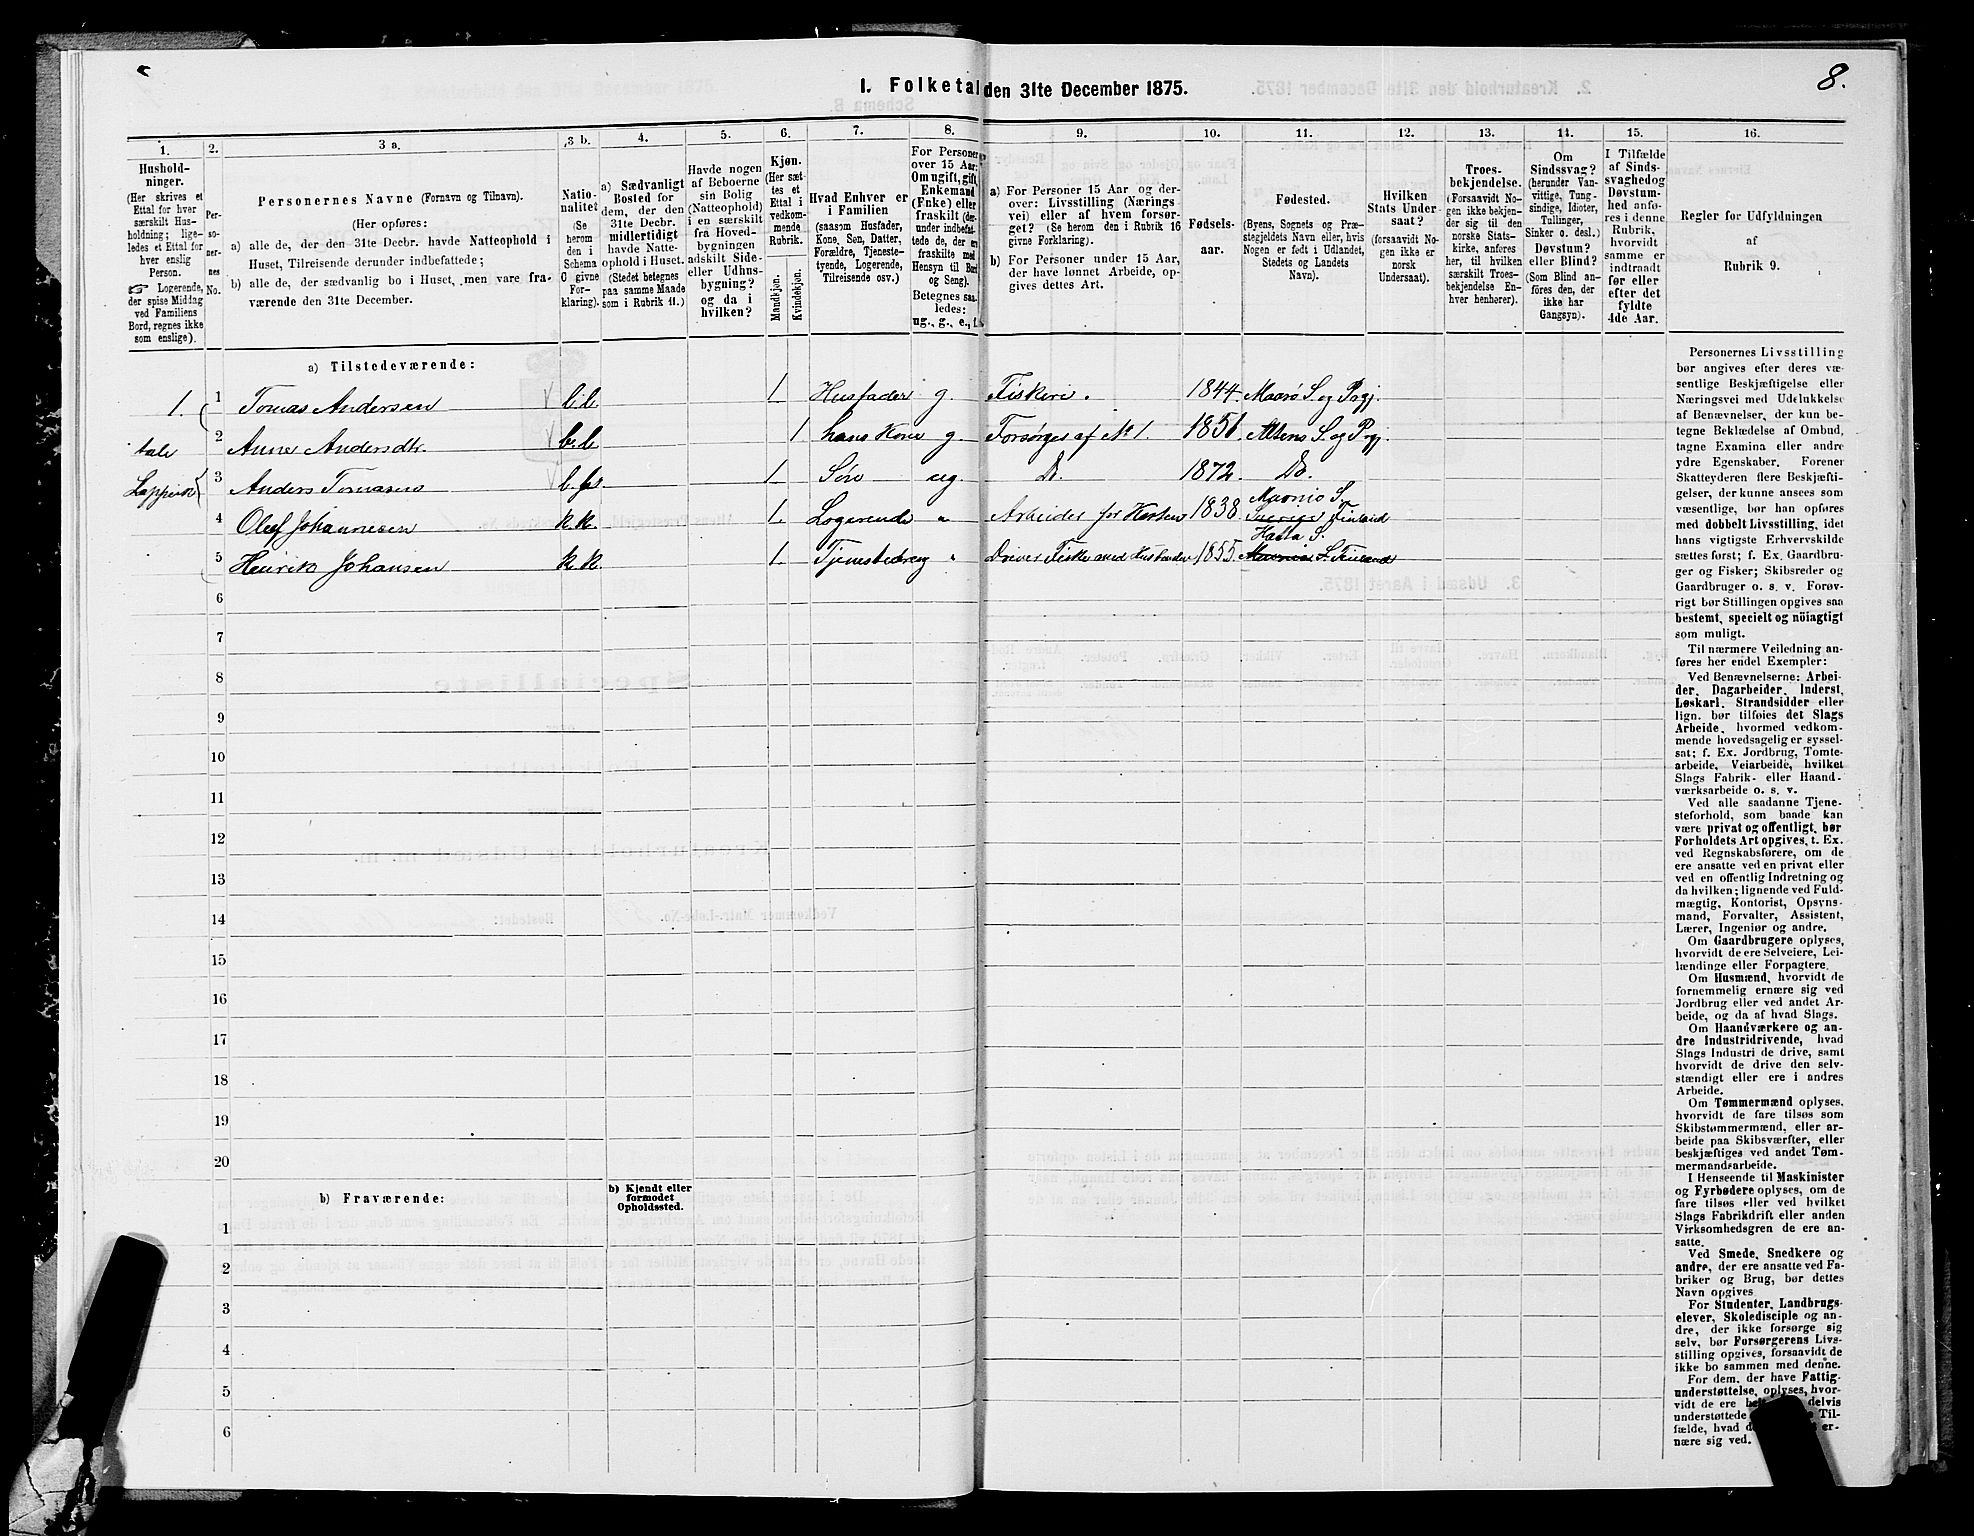 8.
1. Folketal den 31te December 1875.
1. 2. 3 a. 3 b. 4. 5. 6. 7. 8. 9. 10. 11. 12. 13. 14. 15. 16.
Hushold-
ninger.
(Her skrives et
Ettal for hver
særskilt Hus-
holdning; lige-
ledes et Ettal for
hver enslig
Person.
☞ Logerende,
der spise Middag
ved Familiens
Bord, regnes ikke
som enslige).
Per-
so-
ner-
nes
No.
Personernes Navne (Fornavn og Tilnavn).
(Her opføres:
a) alle de, der den 31te Decbr. havde Natteophold i
Huset, Tilreisende derunder indbefattede;
b) alle de, der sædvanlig bo i Huset, men vare fra-
værende den 31te December.
Natio-
nalitet
(Se
herom
den i
Schema
G givne
For-
klaring).
a) Sædvanligt
Bosted for
dem, der den
31te Decbr.
midlertidigt
havde Natte-
ophold i Huset.
(Stedet betegnes
paa samme Maade
som i Rubrik 11.)
Havde nogen
af Beboerne
sin Bolig
(Natteophold)
i en særskilt
fra Hoved-
bygningen
adskilt Side-
eller Udhus-
bygning?
og da i
hvilken?
Kjøn.
(Her sæt-
tes et
Ettal i
vedkom-
mende
Rubrik.
Mandkjøn.
Kvindekjøn.
Hvad Enhver er
i Familien
(saasom Husfader,
Kone, Søn, Datter,
Forældre, Tjeneste-
tyende, Logerende,
Tilreisende osv.)
For Personer
over 15 Aar:
Om ugift, gift,
Enkemand
(Enke) eller
fraskilt (der-
under indbefat-
tede de, der er
fraskilte med
Hensyn til Bord
og Seng).
Betegnes saa-
ledes:
ug., g., e., f.
a) For Personer 15 Aar og der-
over: Livsstilling (Nærings-
vei) eller af hvem forsør-
get? (Se herom den i Rubrik 16
givne Forklaring).
b) For Personer under 15 Aar,
der have lønnet Arbeide, op-
gives dettes Art.
Fødsels-
aar.
Fødested.
(Byens, Sognets og Præ-
stegjeldets Navn eller, hvis
Nogen er født i Udlandet,
Stedets og Landets
Navn).
Hvilken
Stats Under-
saat?
(forsaavidt No-
gen ikke er
norsk
Undersaat).
Troes-
bekjendelse.
(Forsaavidt No-
gen ikke bekjen-
der sig til den
norske Stats-
kirke, anføres
her, til hvilken
særskilt Troes-
bekjendelse En-
hver henhører).
Om
Sindssvag?
(herunder Van-
vittige, Tung-
sindige, Idioter,
Tullinger,
Sinker o. desl.)
Døvstum?
eller Blind?
(Som Blind an-
føres den, der
ikke har
Gangsyn).
I Tilfælde
af Sinds-
svaghed og
Døvstum-
hed anfø-
res i denne
Rubrik,
hvorvidt
samme er
indtraadt
før eller
efter det
fyldte
4de Aar.
Regler for Udfyldningen
af
Rubrik 9.
a) Tilstedeværende:
1. 1 Tomas Andersen b.b 1 Husfader g. Fiskeri. 1844. Maasø S. og Prgj.
tale 2 Anne Andersdtr. b.b 1 hans Kone g. Forsørges af No 1. 1851 Altens S. og Prgj.
Lappisk 3 Anders Tomasen 1 Søn ug. D. 1872. Do.
4 Oluf Johannesen k.k. 1. Logerende " Arbeider for Kosten 1838. Muonio S. Finland
5 Henrik Johansen k.k. 1. Tjenestedreng " Driver Fiske med Husbonden 1855. S. Finland
6
7
8
9
10
11
12
13
14
15
16
17
18
19
20
b) Fraværende:
b) Kjendt eller
formodet
Opholdssted.
1
2
3
4
5
6
Personernes Livsstilling
bør angives efter deres væ-
sentlige Beskjæftigelse eller
Næringsvei med Udelukkelse
af Benævnelser, der kun be-
tegne Beklædelse af Ombud,
tagne Examina eller andre
ydre Egenskaber. Forener
Skatteyderen flere Beskjæfti-
gelser, der kunne ansees som
væsentlige, bør han opgives
med dobbelt Livsstilling, idet
hans vigtigste Erhvervskilde
sættes først; f. Ex. Gaardbru-
ger og Fisker; Skibsreder og
Gaardbruger o. s. v. Forøv-
rigt bør Stillingen opgives saa
bestemt, specielt og nöiagtigt
som muligt.
Til nærmere Veiledning an-
føres her endel Exempler:
Ved Benævnelserne: Arbei-
der, Dagarbeider, Inderst,
Løskarl, Strandsidder eller
lign. bør tilføies det Slags
Arbeide, hvormed vedkom-
mende hovedsagelig er syssel-
sat; f. Ex. Jordbrug, Tomte-
arbeide, Veiarbeide, hvilket
Slags Fabrik- eller Haand-
værksarbeide o. s. v.
Ved alle saadanne Tjene-
steforhold, som baade kan
være privat og offentligt, bør
Forholdets Art opgives, t. Ex.
ved Regnskabsførere, om de
ere ansatte ved en privat eller
ved en offentlig Indretning og
da hvilken; lignende ved Fuld-
mægtig, Kontorist, Opsyns-
mand, Forvalter, Assistent,
Lærer, Ingeniør og andre.
Om Gaardbrugere oplyses,
hvorvidt de ere Selveiere, Lei-
lændinge eller Forpagtere.
Om Husmænd, hvorvidt de
fornemmelig ernære sig ved
Jordbrug eller ved andet Ar-
beide, og da af hvad Slags.
Om Haandværkere og an-
dre Industridrivende, hvad
Slags Industri de drive, samt
hvorvidt de drive den selv-
stændigt eller ere i andres
Arbeide.
Om Tømmermænd oplyses,
hvorvidt de fare tilsøs som
Skibstømmermænd, eller ar-
beide paa Skibsværfter, eller
beskjæftiges ved andet Tøm-
mermandsarbeide.
I Henseende til Maskinister
og Fyrbødere oplyses, om de
fare tilsøs eller ved hvilket
Slags Fabrikdrift eller anden
Virksomhedsgren de ere an-
satte.
Ved Smede, Snedkere og
andre, der ere ansatte ved Fa-
briker og Brug, bør dettes
Navn opgives
For Studenter, Landbrugs-
elever, Skoledisciple og an-
dre, der ikke forsørge sig
selv, bør Forsørgerens Livs-
stilling opgives, forsaavidt de
ikke bo sammen med denne.
For dem, der have Fattig-
understøttelse, oplyses, hvor-
vidt de ere delvis
understøttede Til-
fælde, hvad er-
nære sig ved.